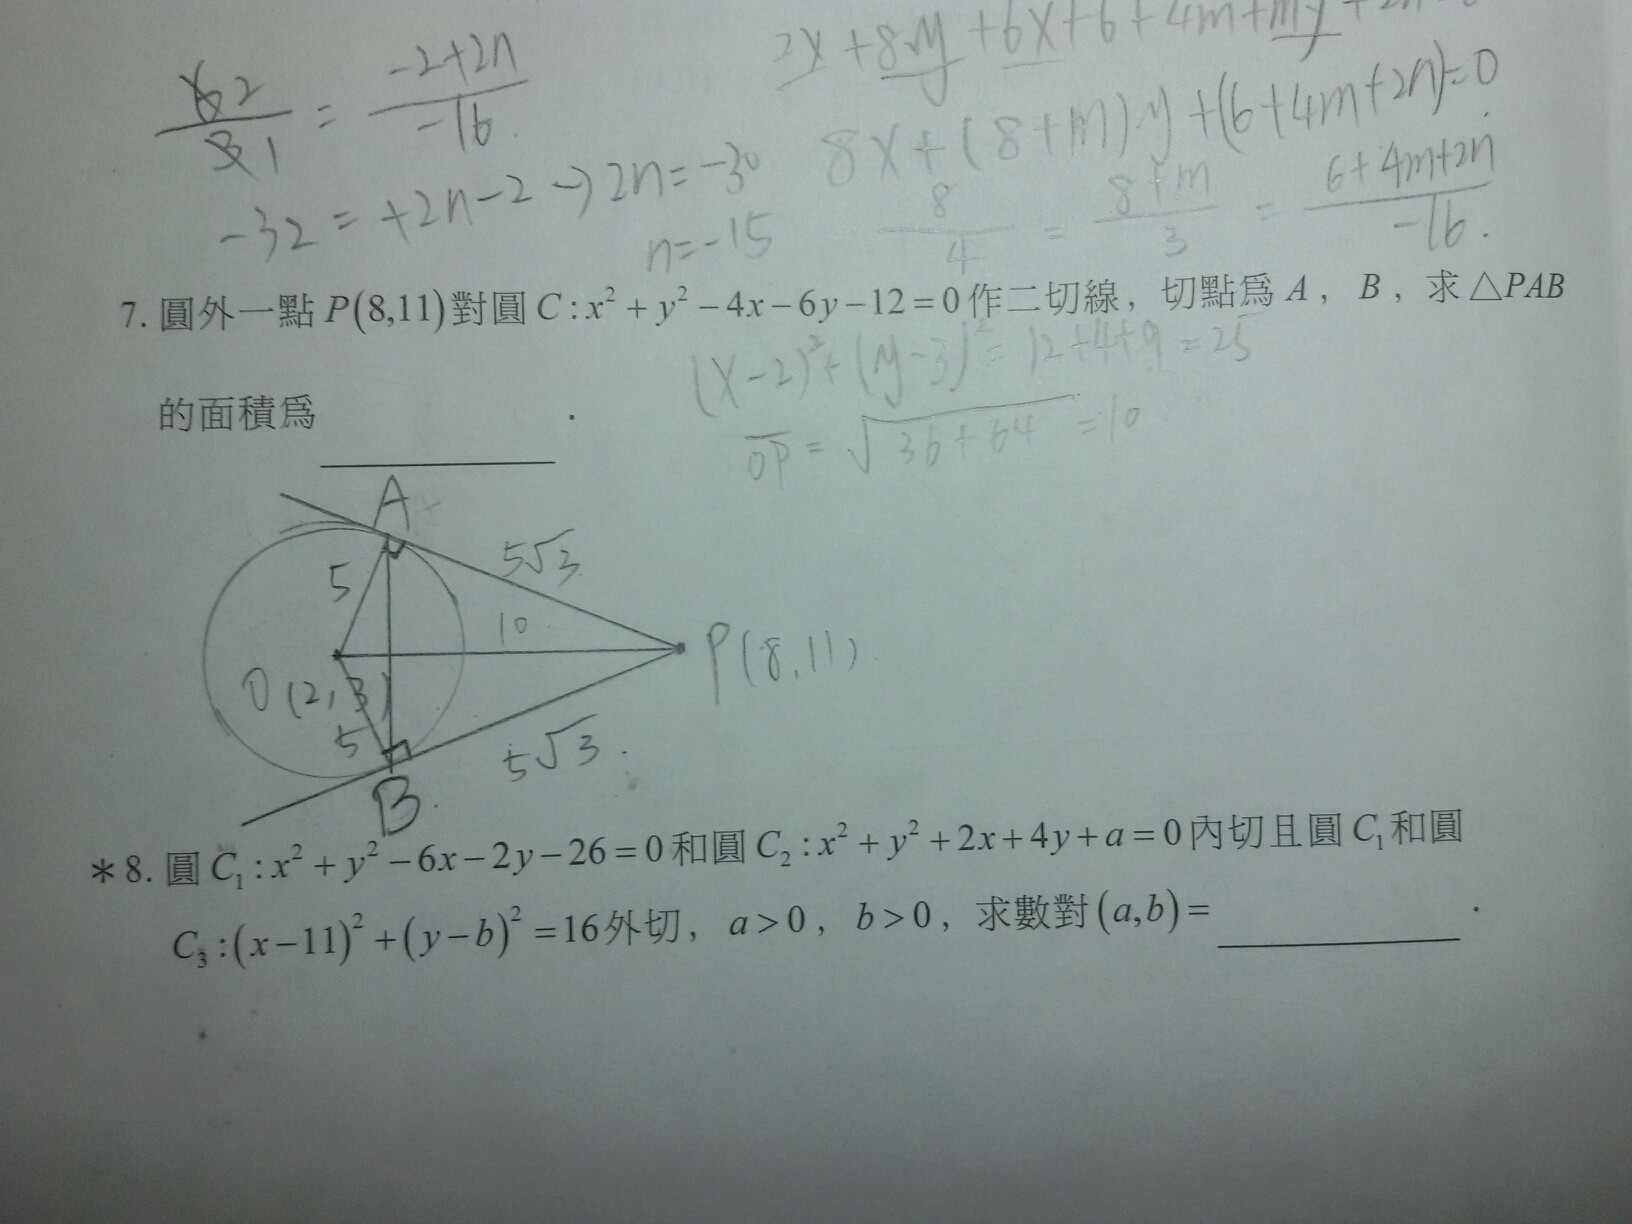 2x + 8y + 6x + 6 + 4m + my +
62/31 = -2+2n/-16.
8x + (8+m)y + (6+4m+2n) = 0
-32 = +2n-2 → 2n = -30
8/4 = 8+m/3 = 6+4m+2n/-16.
n = -15
7. 圓外一點 P(8,11) 對圓 C : x² + y² − 4x − 6y − 12 = 0 作二切線，切點爲 A，B，求 △PAB
(x-2)² + (y-3)² = 12+4+9 = 25
的面積爲 ________ .
OP = √36+64 = 10
A
5
5√3
10
P(8,11)
O(2,3)
5
5√3.
B.
＊8. 圓 C₁ : x² + y² − 6x − 2y − 26 = 0 和圓 C₂ : x² + y² + 2x + 4y + a = 0 內切且圓 C₁ 和圓
C₃ : (x−11)² + (y−b)² = 16 外切，a > 0，b > 0，求數對 (a,b) = ________ .